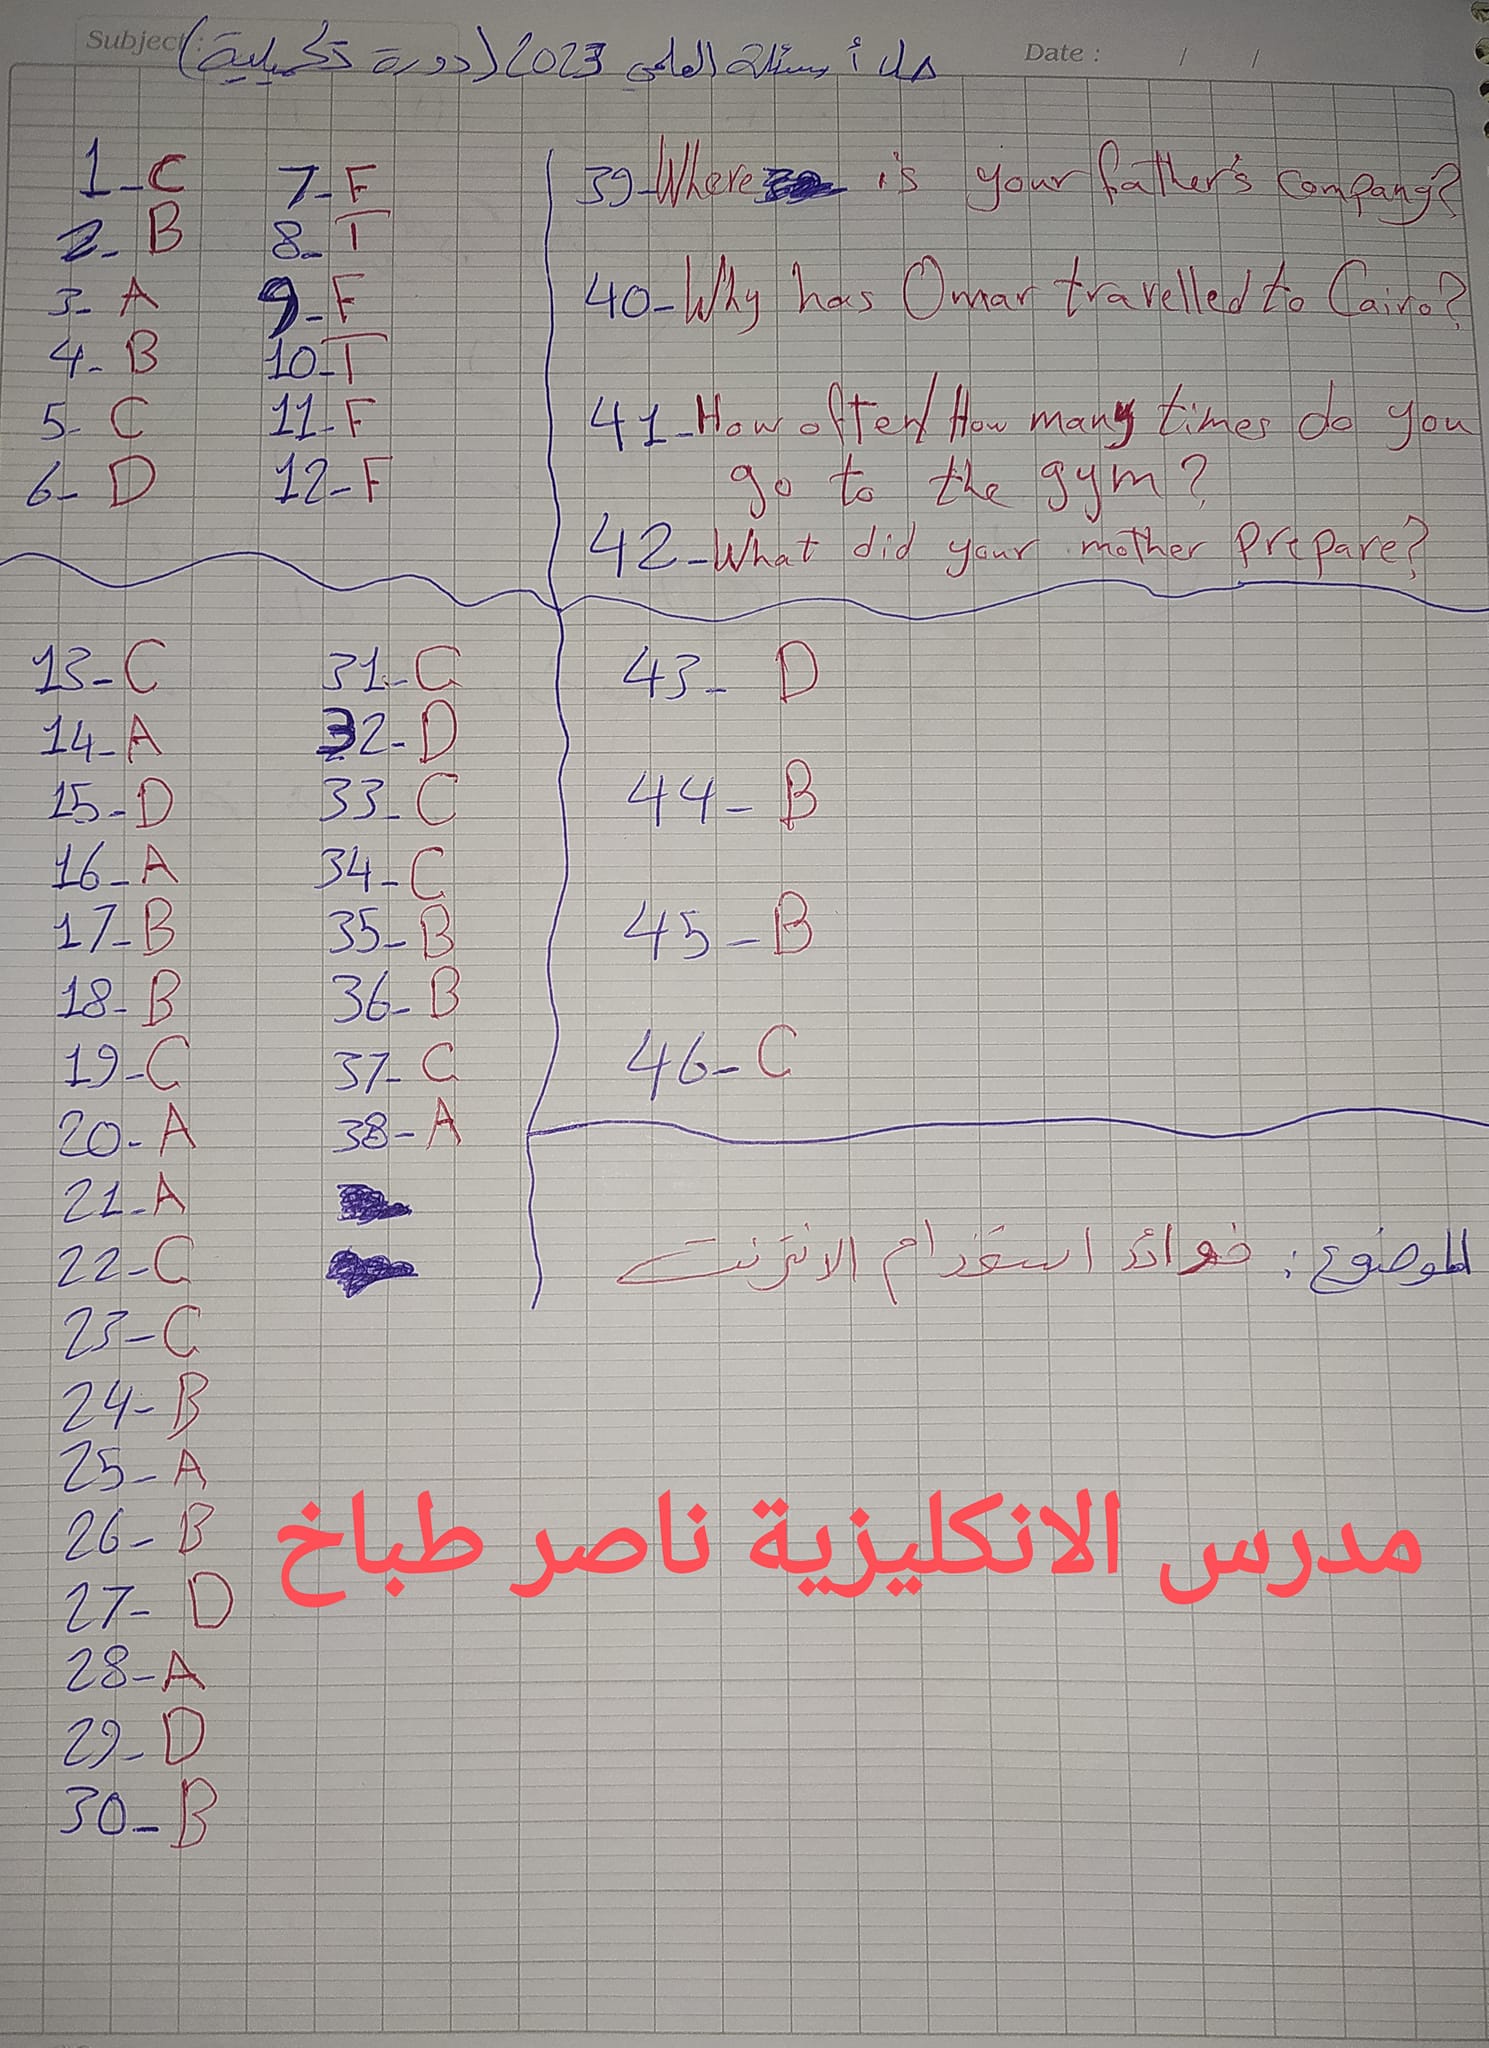 Subject :
حل أسئلة العلمي 2023 (دورة تكميلية)
Date : / /
1- C
2- B
3- A
4- B
5- C
6- D
7- F
8- T
9- F
10- T
11- F
12- F
39- Where is your father's company?
40- Why has Omar travelled to Cairo?
41- How often/How many times do you
go to the gym?
42- What did your mother prepare?
13- C
14- A
15- D
16- A
17- B
18- B
19- C
20- A
21- A
22- C
23- C
24- B
25- A
26- B
27- D
28- A
29- D
30- B
31- C
32- D
33- C
34- C
35- B
36- B
37- C
38- A
43- D
44- B
45- B
46- C
الموضوع: فوائد استخدام الانترنت
مدرس الانكليزية ناصر طباخ